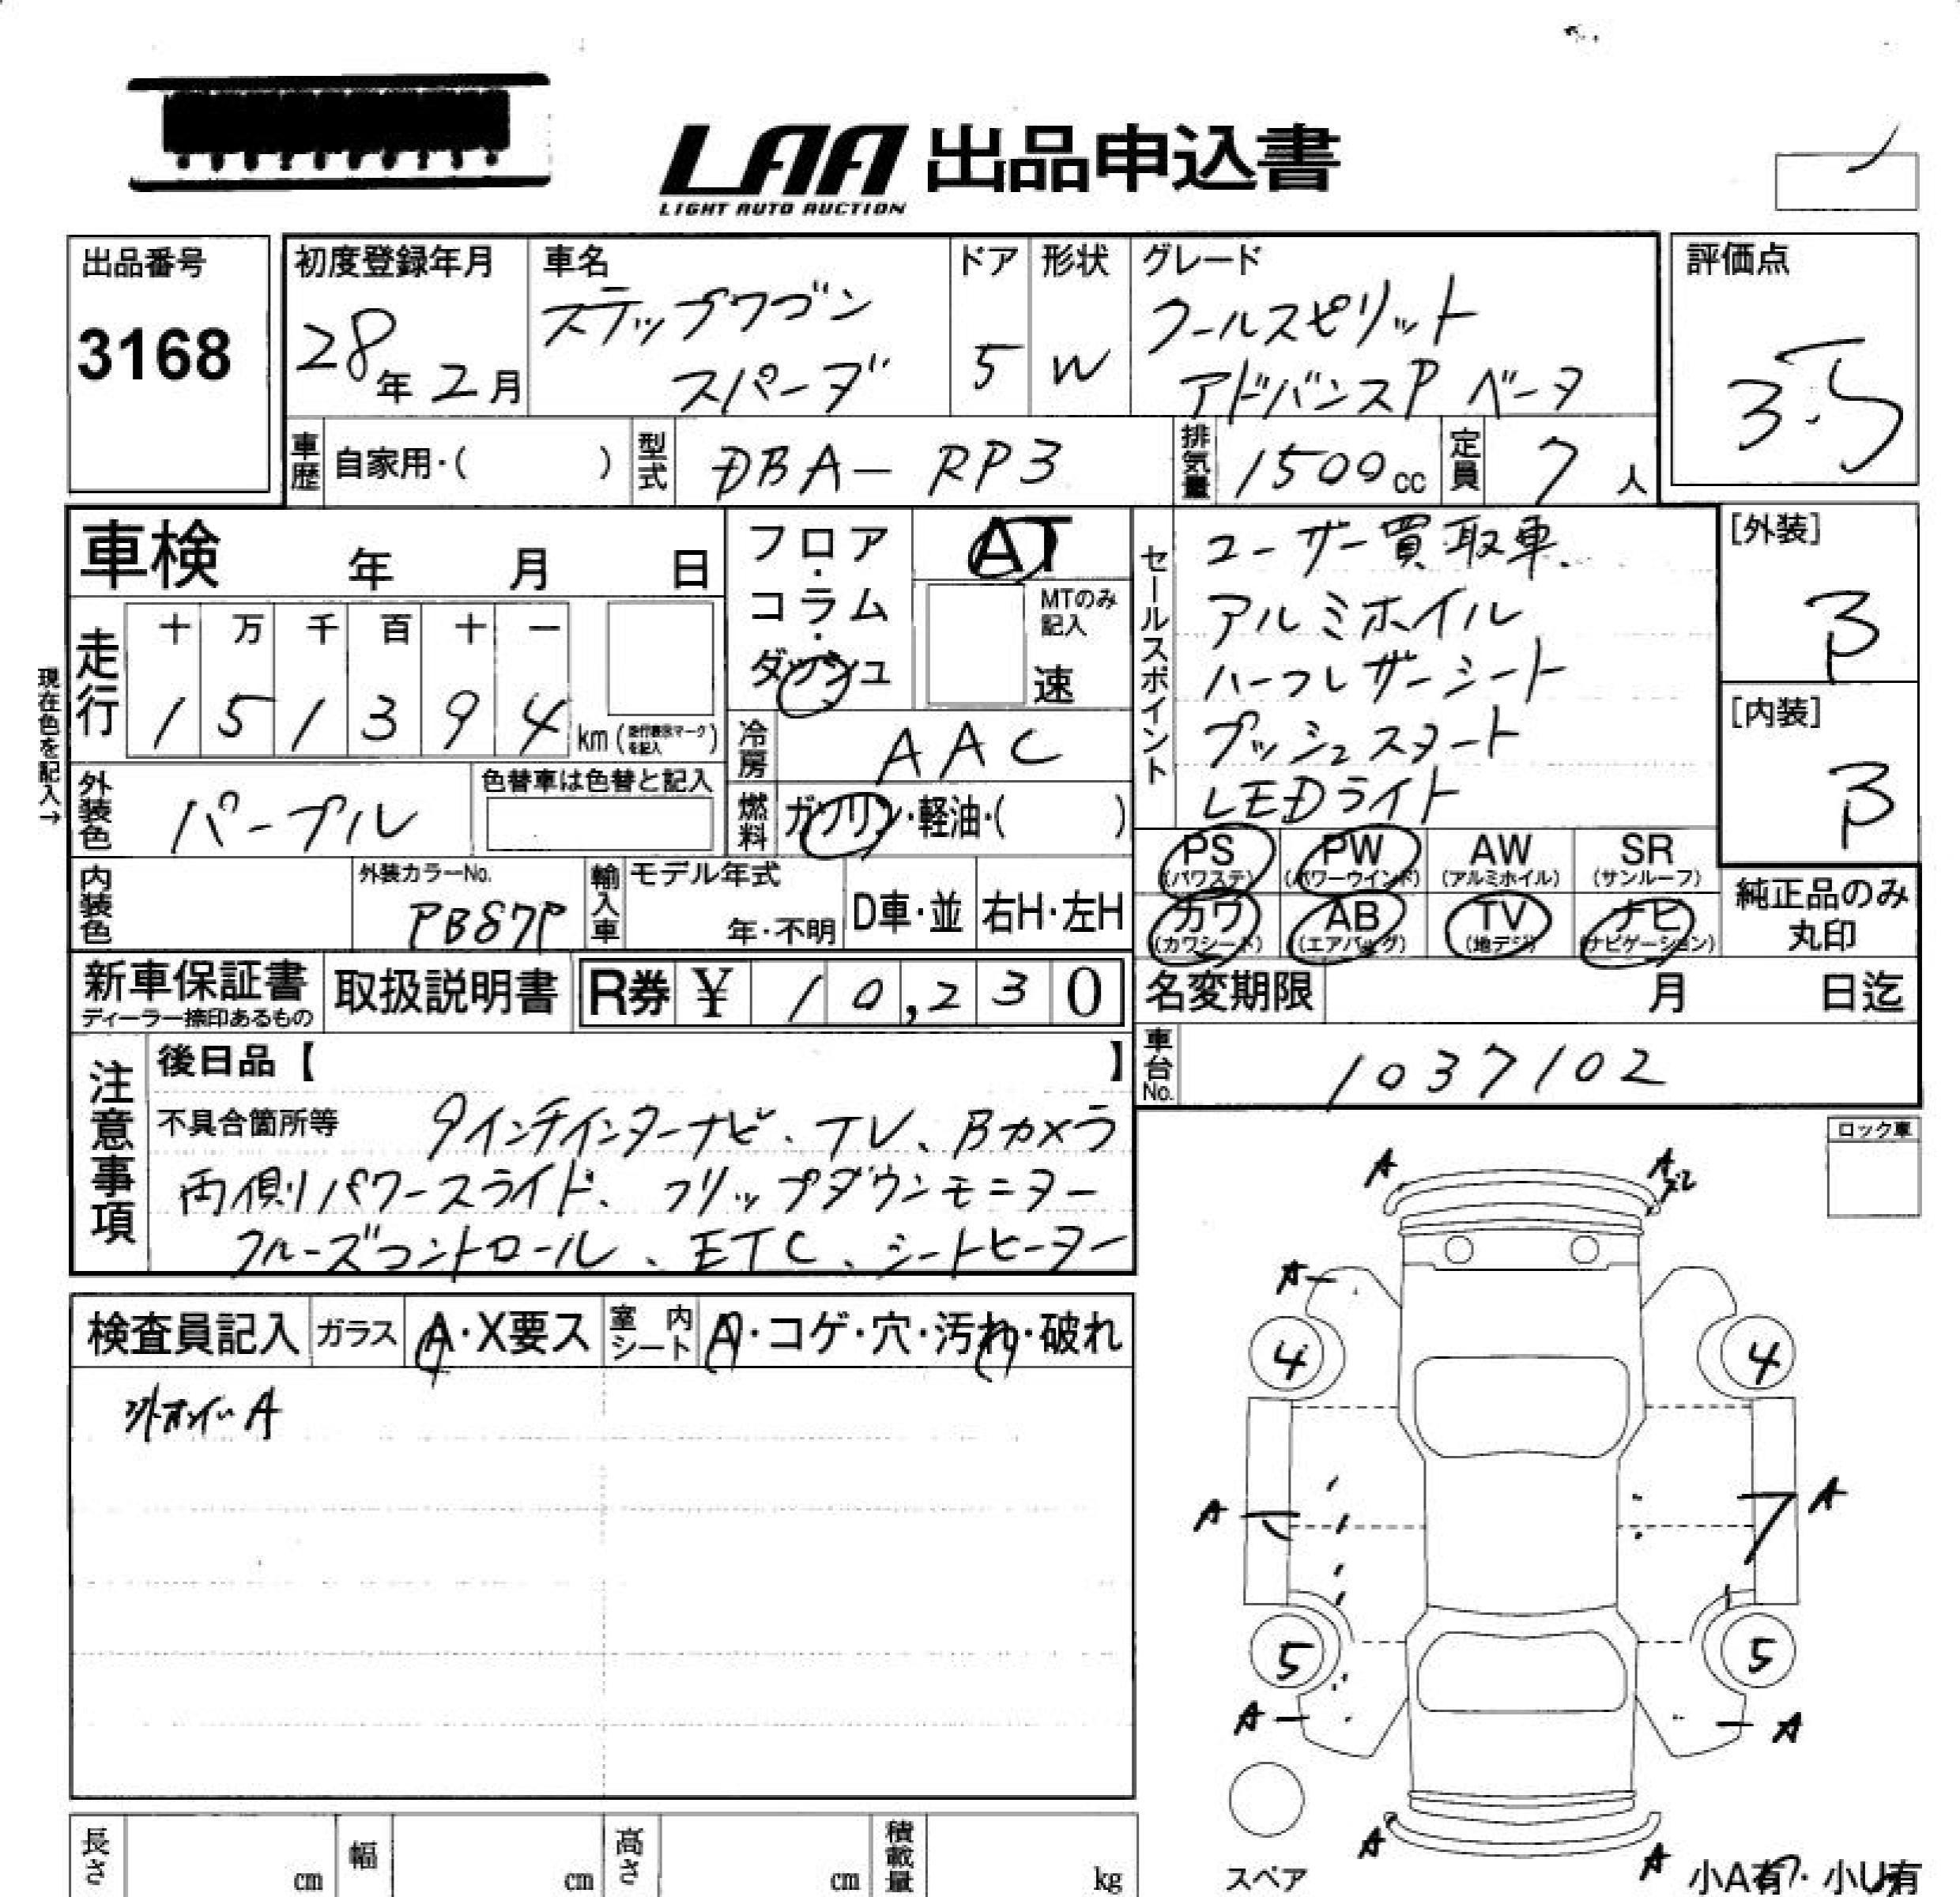 LAA 出品申込書
LIGHT AUTO AUCTION
出品番号
3168
初度登録年月
28年2月
車名
ステップワゴン
スパーダ
ドア
5
形状
W
グレード
クールスピリット
アドバンスP ベータ
評価点
3.5
車歴 自家用・( )
型式 DBA-RP3
排気量 1500cc
定員 7人
車検 年 月 日
フロア・コラム・ダッシュ
AT
MTのみ記入
速
セールスポイント
ユーザー買取車.
アルミホイル
ハーフレザーシート
プッシュスタート
LEDライト
[外装]
B
[内装]
B
現在色を記入→
走行
十 万 千 百 十 一
1 5 1 3 9 4 km(走行表示マークを記入)
冷房 AAC
外装色 パープル
色替車は色替と記入
燃料 ガソリン・軽油・( )
内装色
外装カラーNo.
PB87P
輸入車
モデル年式
年・不明
D車・並
右H・左H
PS (パワステ)
PW (パワーウインド)
AW (アルミホイル)
SR (サンルーフ)
カワ (カワシート)
AB (エアバッグ)
TV (地デジ)
ナビ (ナビゲーション)
純正品のみ
丸印
新車保証書
ディーラー捺印あるもの
取扱説明書
R券 ¥ 10,230
名変期限 月 日迄
車台No. 1037102
注意事項
後日品【 】
不具合箇所等 9インチインターナビ、TV、Bカメラ
両側パワースライド、フリップダウンモニター
クルーズコントロール、ETC、シートヒーター
ロック車
検査員記入
ガラス A・X要ス
室内シート A・コゲ・穴・汚れ・破れ
A
A
A
A
4
4
A
A
5
5
A
A
スペア
A
A
小A有・小U有
長さ cm
幅 cm
高さ cm
積載量 kg